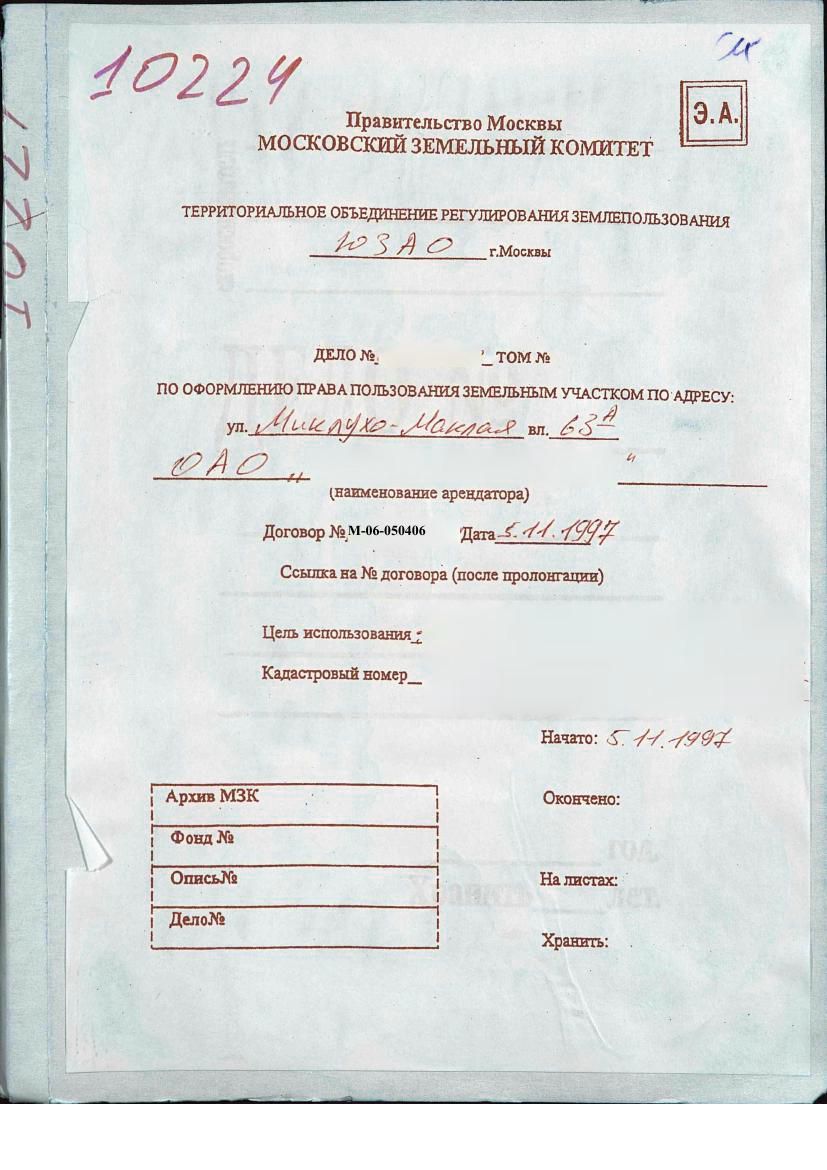 10224
Э.А.
Правительство Москвы
МОСКОВСКИЙ ЗЕМЕЛЬНЫЙ КОМИТЕТ
ТЕРРИТОРИАЛЬНОЕ ОБЪЕДИНЕНИЕ РЕГУЛИРОВАНИЯ ЗЕМЛЕПОЛЬЗОВАНИЯ
ЮЗАО г.Москвы
ДЕЛО № ТОМ №
ПО ОФОРМЛЕНИЮ ПРАВА ПОЛЬЗОВАНИЯ ЗЕМЕЛЬНЫМ УЧАСТКОМ ПО АДРЕСУ:
ул. Миклухо-Маклая вл. 63А
ОАО „ “
(наименование арендатора)
Договор № М-06-050406 Дата 5.11.1997
Ссылка на № договора (после пролонгации)
Цель использования:
Кадастровый номер
Начато: 5.11.1997
Архив МЗК
Окончено:
Фонд №
Опись№
На листах:
Дело№
Хранить: